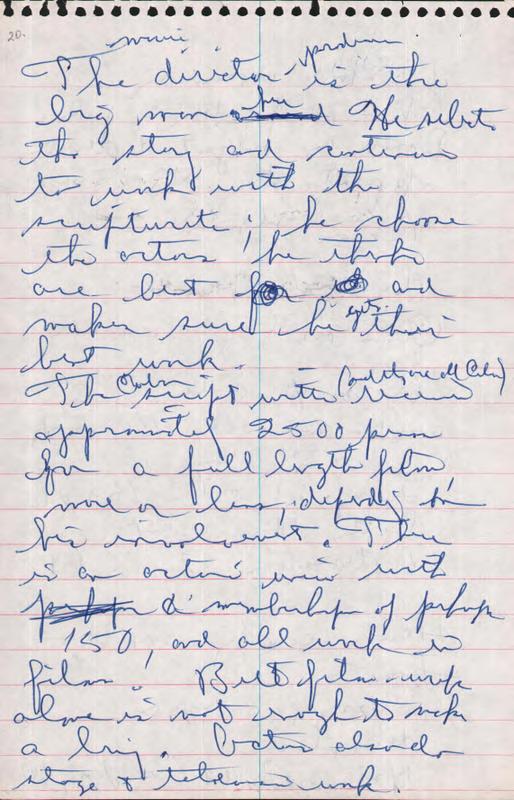 20.
movie
The director is the
big man here He selects
the story and continues
to work with the
scriptwriter; he chooses
the actors he thinks
are best for and
makes sure he gets their
best work.
The Cuban script writer receives (and they are all Cuban)
approximately 2500 pesos
for a full length film,
more or less, depending on
his involvement. There
is an actors' union with
a membership of perhaps
150, and all work in
film. But film work
alone is not enough to make
a living. Actors also do
stage & television work.